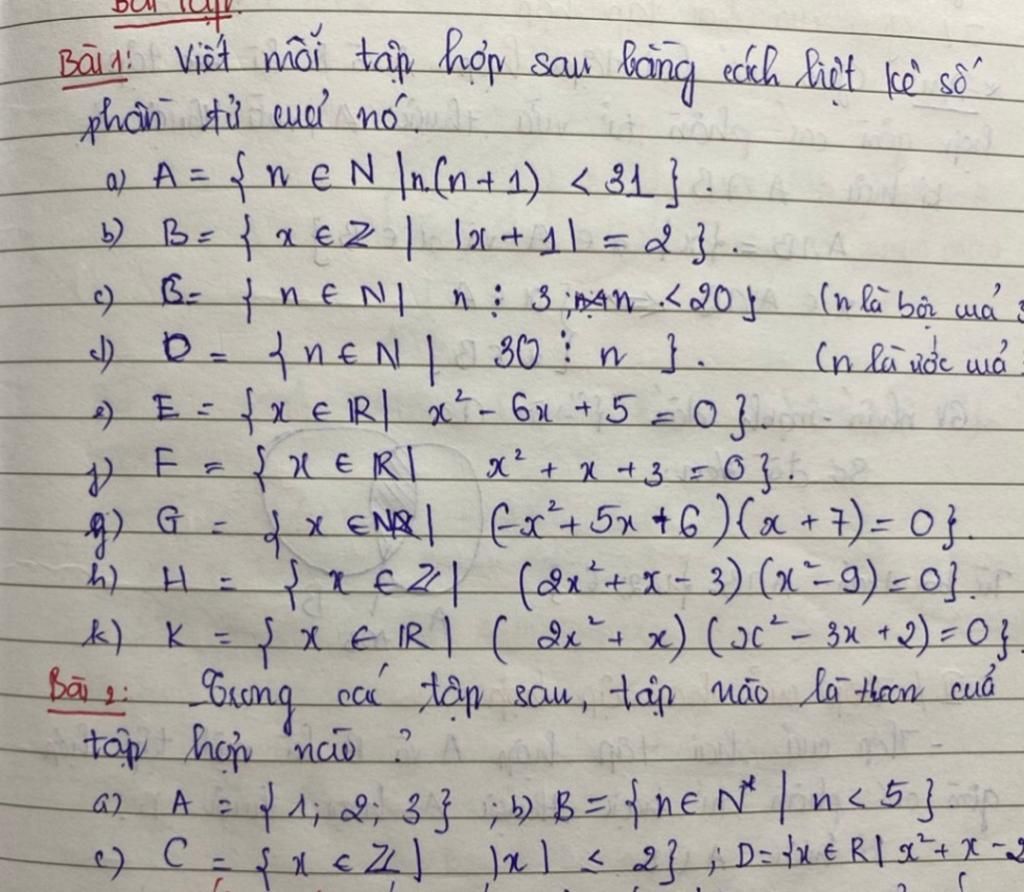 Bài tập.
Bài 1: Viết mỗi tập hợp sau bằng cách liệt kê số
phần tử cuả nó.
a) A = { n ∈ N | n.(n + 1) < 31 }.
b) B = { x ∈ Z | |x + 1| = 2 }.
c) B = { n ∈ N | n ⋮ 3; n < 20 } (n là bội cuả 3
d) D = { n ∈ N | 30 ⋮ n }. (n là ước cuả
e) E = { x ∈ R | x² - 6x + 5 = 0 }.
f) F = { x ∈ R | x² + x + 3 = 0 }.
g) G = { x ∈ N | (-x² + 5x + 6)(x + 7) = 0 }.
h) H = { x ∈ Z | (2x² + x - 3)(x² - 9) = 0 }.
k) K = { x ∈ R | (2x² + x)(x² - 3x + 2) = 0 }
Bài 2: Trong cá tập sau, tập nào là con cuả
tập hợp nào ?
a) A = { 1; 2; 3 } ; b) B = { n ∈ N* | n < 5 }
c) C = { x ∈ Z | |x| ≤ 2 } ; D = { x ∈ R | x² + x - 2